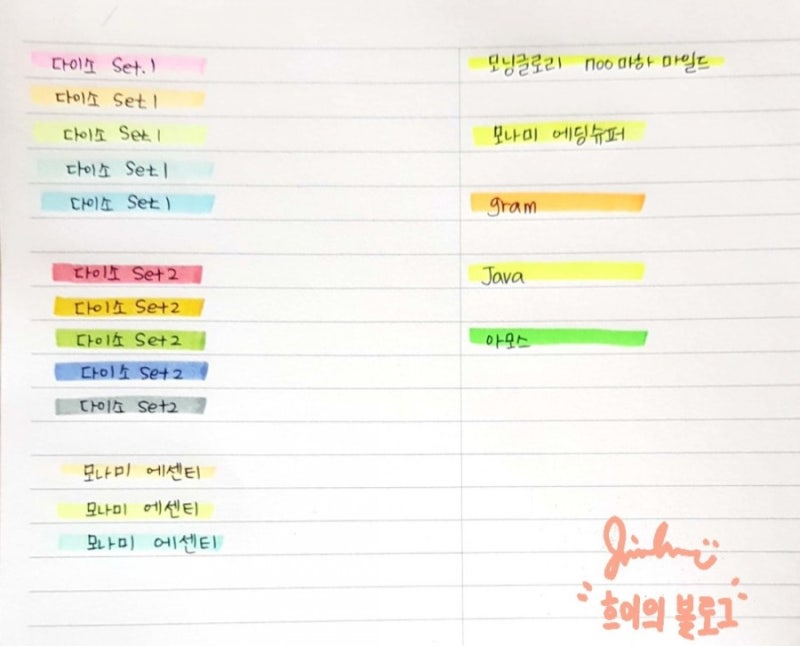 다이소 Set.1
다이소 Set1
다이소 Set1
다이소 Set1
다이소 Set1
다이소 Set2
다이소 Set2
다이소 Set2
다이소 Set2
다이소 Set2
모나미 에센티
모나미 에센티
모나미 에센티
모닝글로리 noo 마하 마일드
모나미 에딩슈퍼
gram
Java
아모스
흐이의 블로그